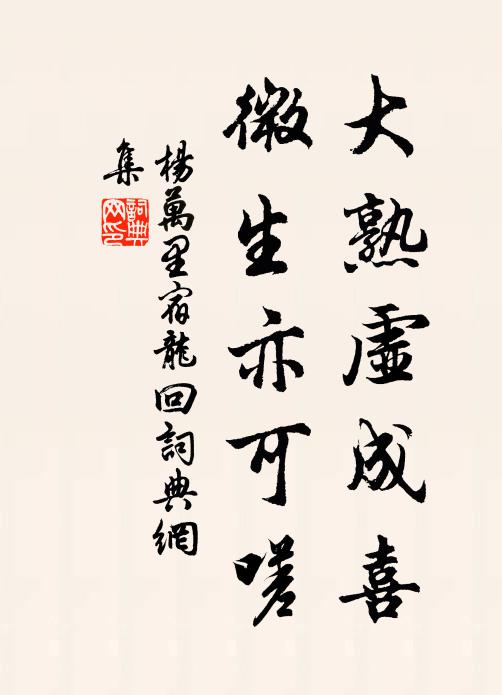 大熟虛成喜
微生亦可嗟
楊萬里宿龍回詞典網
集
詞典
网印